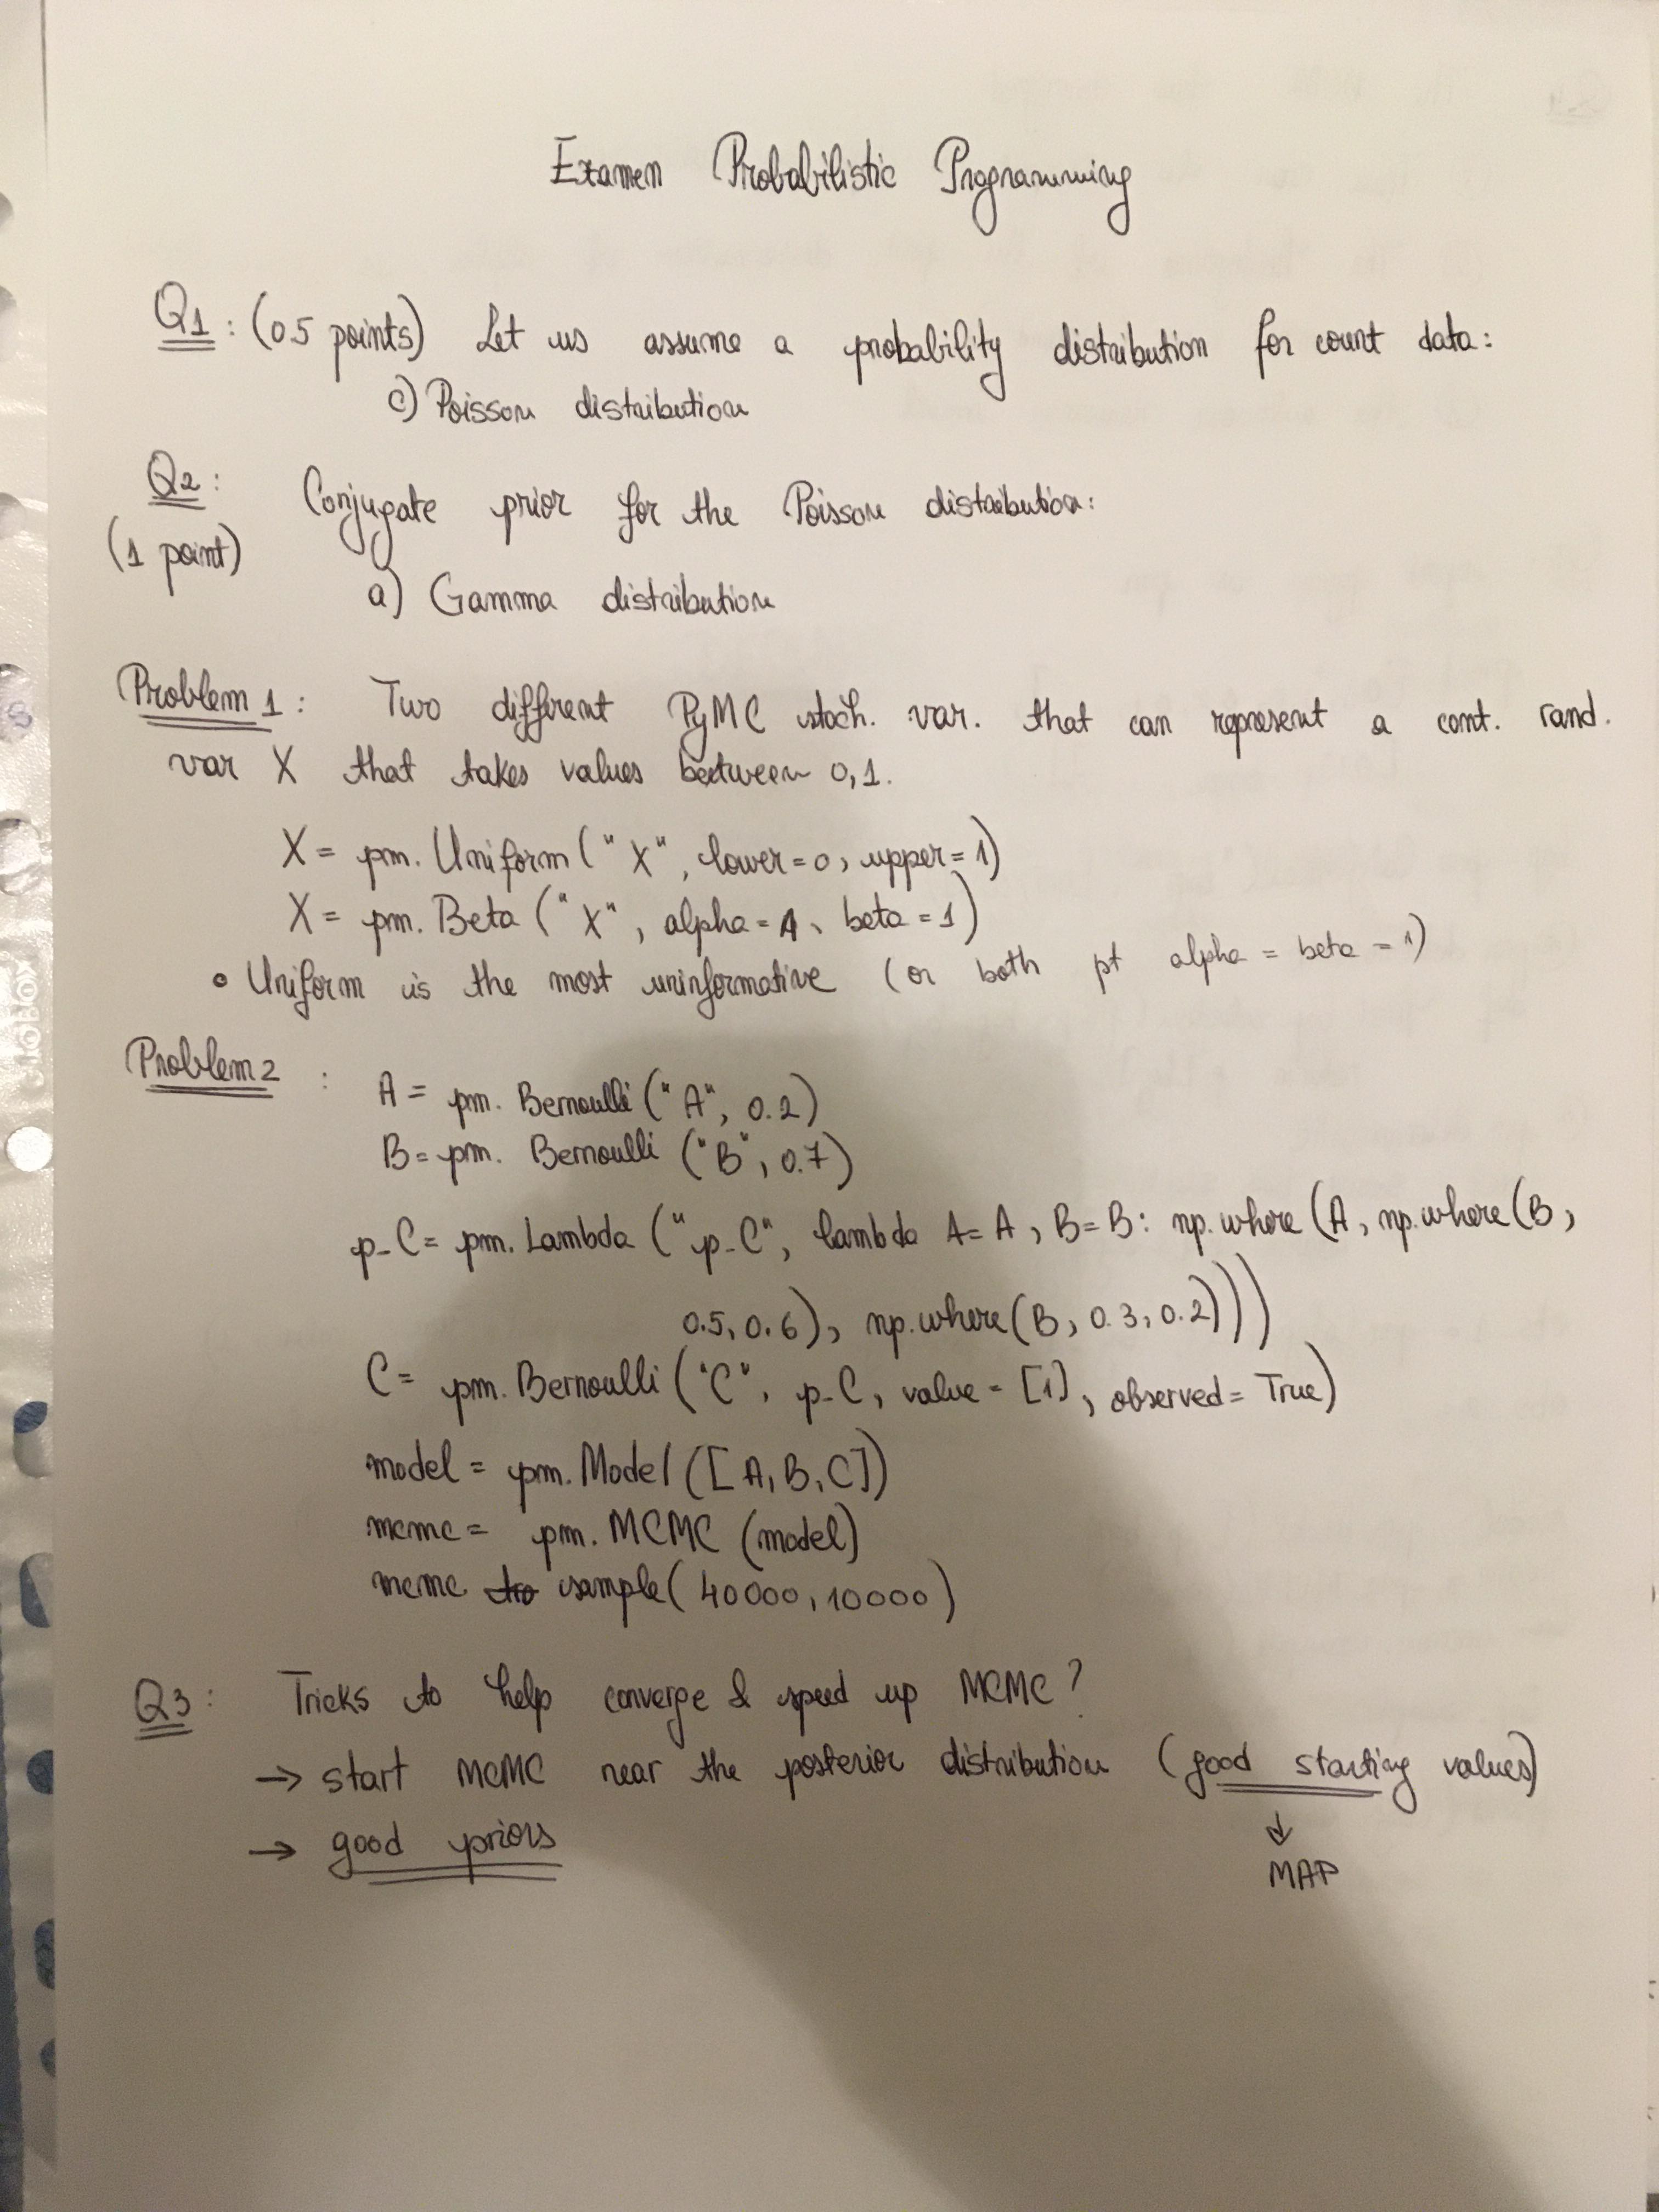 Examen Probabilistic Programming
Q1: (0.5 points) Let us assume a probability distribution for count data:
c) Poisson distribution
Q2: Conjugate prior for the Poisson distribution:
(1 point)
a) Gamma distribution
Problem 1: Two different PyMC stoch. var. that can represent a cont. rand.
var X that takes values between 0,1.
X = pm. Uniform ("X", lower=0, upper=1)
X = pm. Beta ("X", alpha=1, beta=1)
• Uniform is the most uninformative (or both pt alpha = beta = 1)
Problem 2: A = pm. Bernoulli ("A", 0.2)
B = pm. Bernoulli ("B", 0.7)
p_C = pm. Lambda ("p_C", lambda A=A, B=B: np.where (A, np.where (B,
0.5, 0.6), np.where (B, 0.3, 0.2)))
C = pm. Bernoulli ("C", p_C, value = [1], observed = True)
model = pm. Model ([A, B, C])
mcmc = pm. MCMC (model)
mcmc sample (40000, 10000)
Q3: Tricks to help converge & speed up MCMC?
→ start MCMC near the posterior distribution (good starting values)
→ good priors
↓
MAP